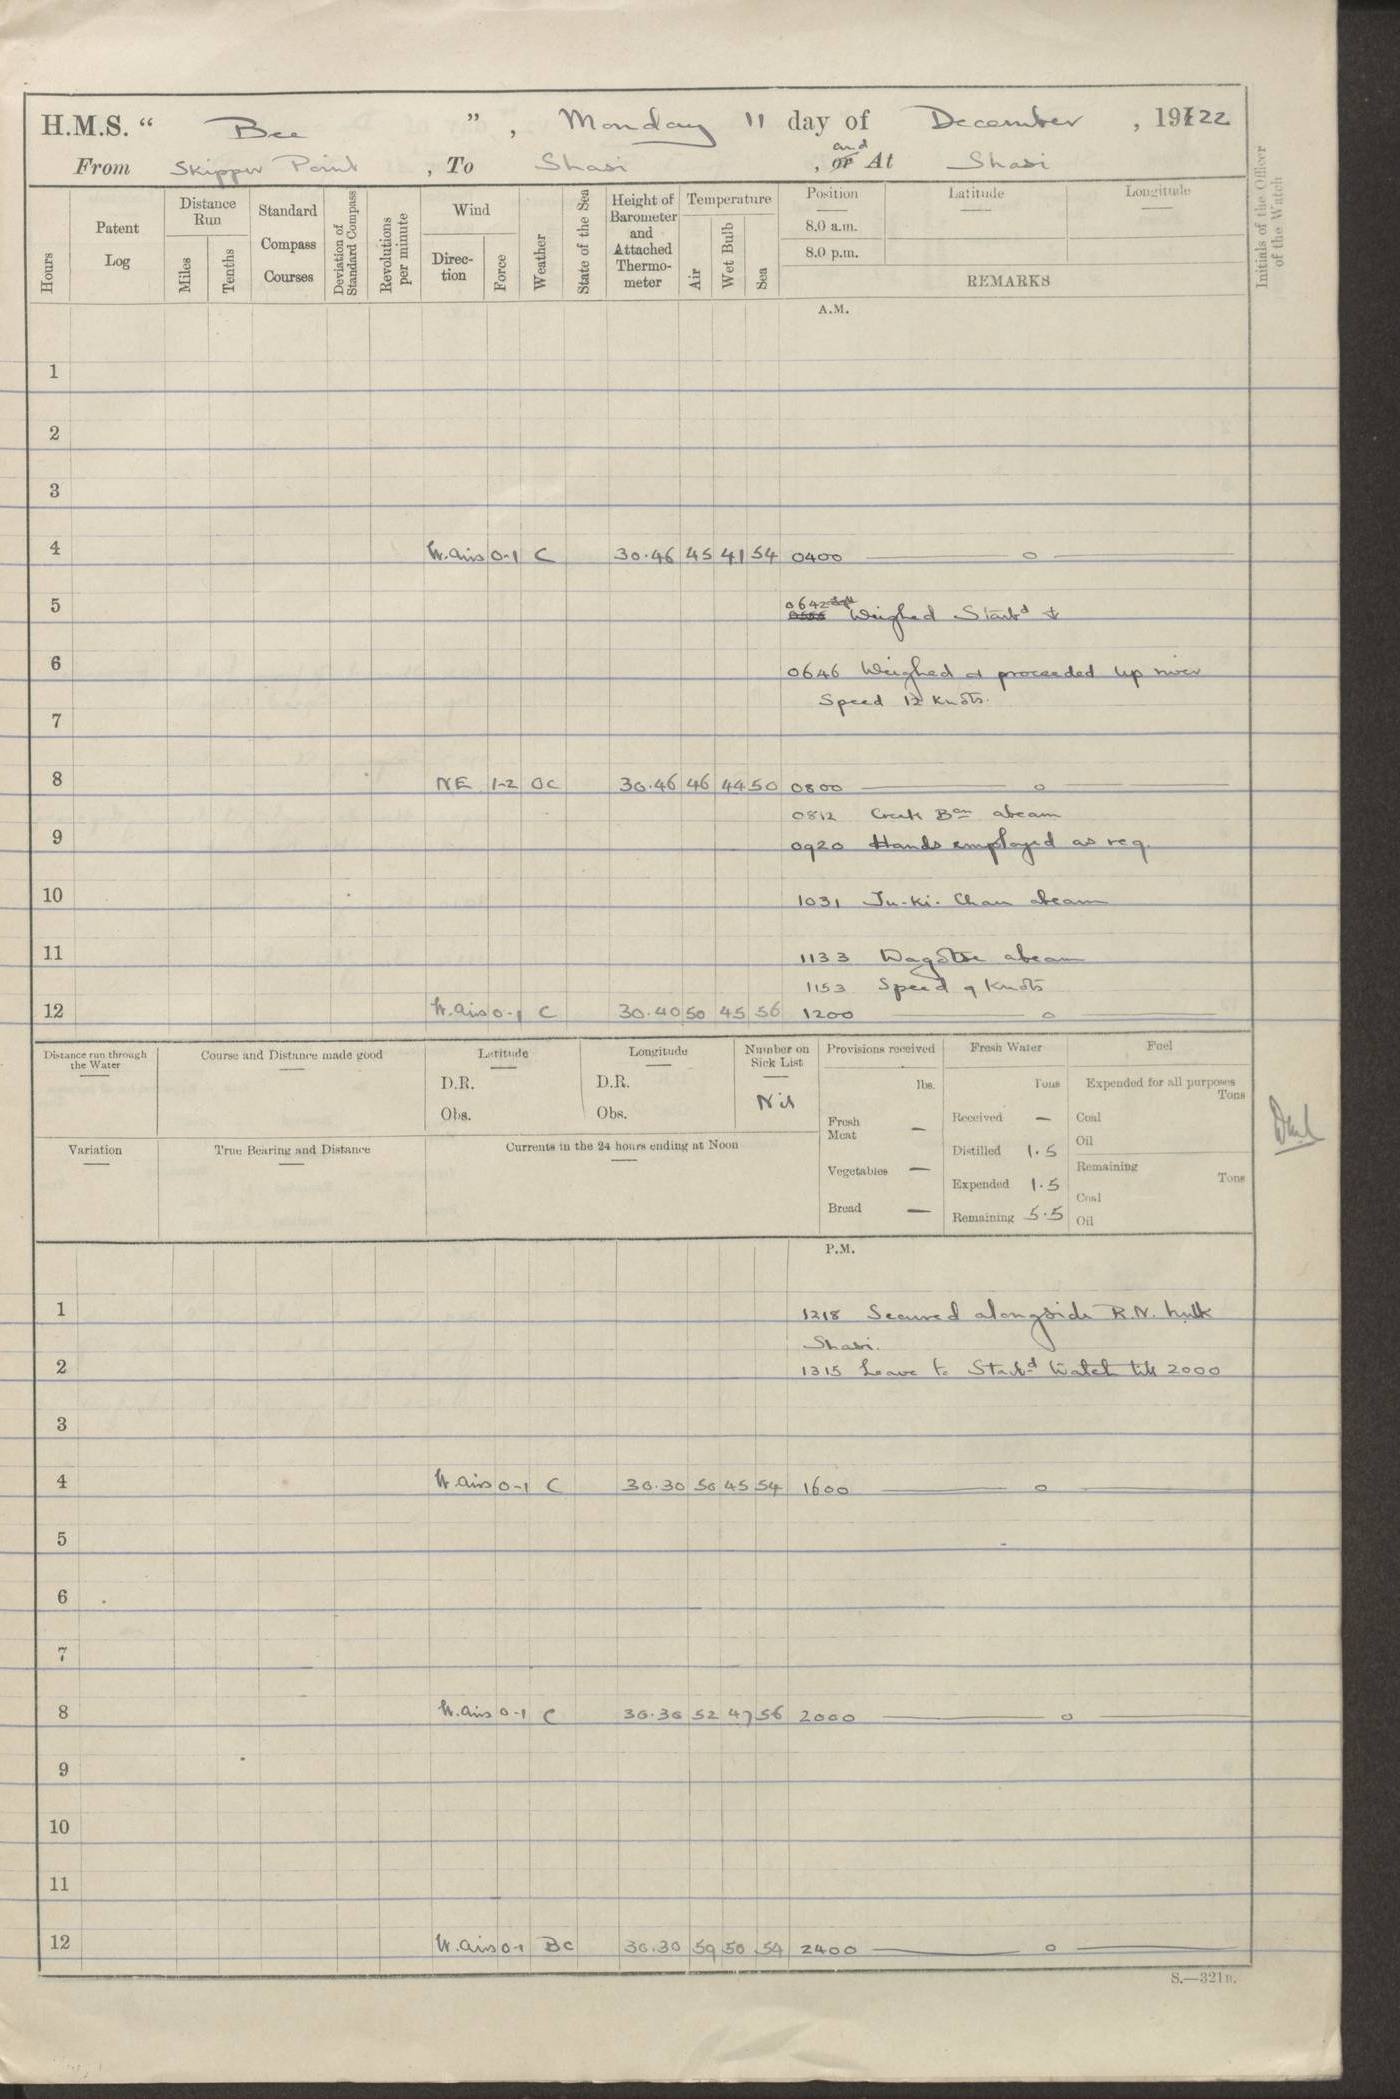 H.M.S. “ Bee ” , Monday 11 day of December , 19122
From Skipper Point , To Shasi , or and At Shasi
Hours
Patent Log
Distance Run
Miles
Tenths
Standard Compass Courses
Deviation of Standard Compass
Revolutions per minute
Wind
Direction
Force
Weather
State of the Sea
Height of Barometer and Attached Thermometer
Temperature
Air
Wet Bulb
Sea
Position
Latitude
Longitude
8.0 a.m.
8.0 p.m.
REMARKS
Initials of the Officer of the Watch
A.M.
1
2
3
4 W. airs 0-1 C 30.46 45 41 54 0400 ——— o ———
5 0642 Weighed Starbd
6 0646 Weighed & proceeded up river
Speed 12 Knots.
7
8 NE 1-2 OC 30.46 46 44 50 0800 ——— o ———
0812 Creek Bcn abeam
9 0920 Hands employed as req.
10 1031 Ju-Ki-Chau abeam
11 1133 abeam
1153 Speed 9 Knots
12 W. airs 0-1 C 30.40 50 45 56 1200 ——— o ———
Distance run through the Water
Course and Distance made good
Latitude
D.R.
Obs.
Longitude
D.R.
Obs.
Number on Sick List
Nil
Variation
True Bearing and Distance
Currents in the 24 hours ending at Noon
Provisions received
lbs.
Fresh Meat —
Vegetables —
Bread —
Fresh Water
Tons
Received —
Distilled 1.5
Expended 1.5
Remaining 5.5
Fuel
Expended for all purposes
Tons
Coal
Oil
Remaining
Tons
Coal
Oil
P.M.
1 1218 Secured alongside R.N. hulk
Shasi.
2 1315 Leave to Starbd Watch till 2000
3
4 W. airs 0-1 C 30.30 50 45 54 1600 ——— o ———
5
6
7
8 W. airs 0-1 C 30.30 52 47 56 2000 ——— o ———
9
10
11
12 W. airs 0-1 BC 30.30 59 50 54 2400 ——— o ———
S.—321B.